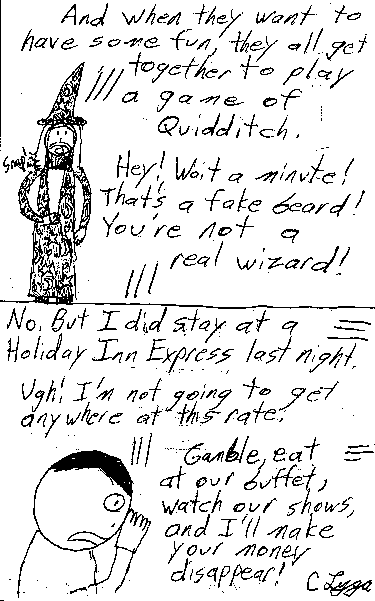 And when they want to
have some fun, they all get
together to play
a game of
Quidditch.
Hey! Wait a minute!
That's a fake beard!
You're not a
real wizard!
No. But I did stay at a
Holiday Inn Express last night.
Ugh! I'm not going to get
anywhere at this rate.
Gamble, eat
at our buffet,
watch our shows,
and I'll make
your money
disappear!